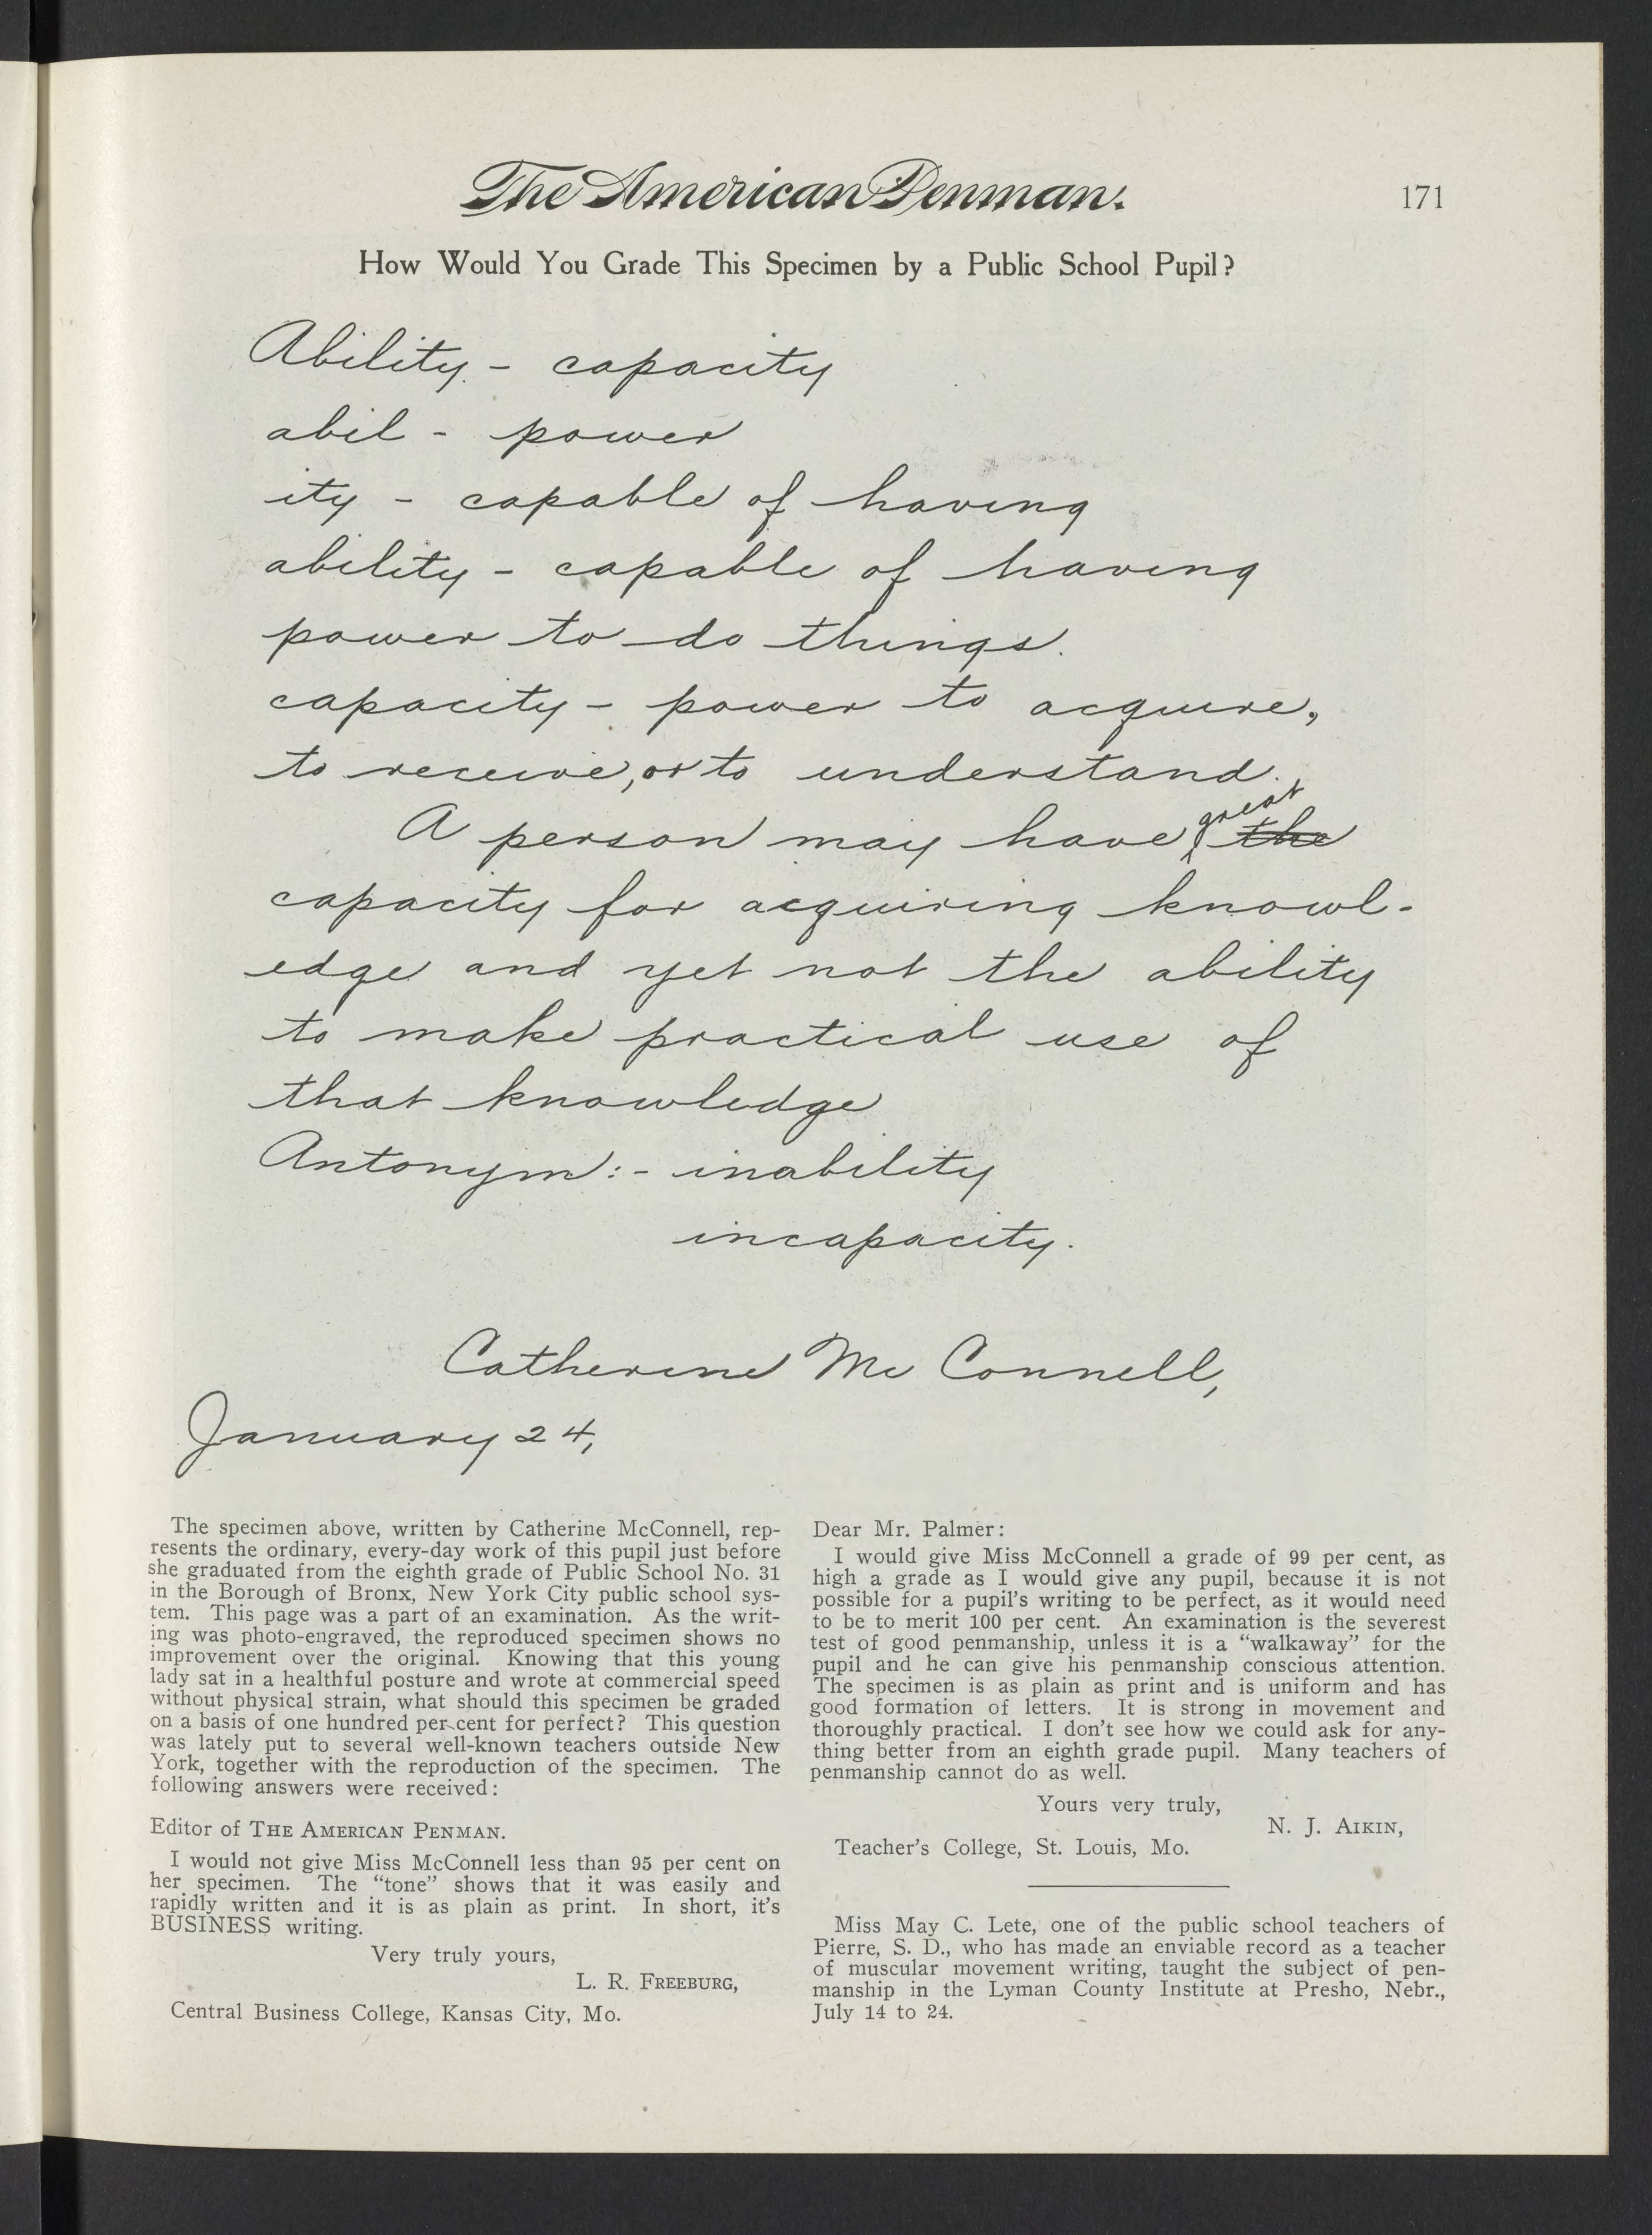 The American Penman.
171
How Would You Grade This Specimen by a Public School Pupil?
Ability - capacity
abil - power
ity - capable of having
ability - capable of having
power to do things.
capacity - power to acquire,
to receive, or to understand.
great
A person may have the
capacity for acquiring knowl-
edge and yet not the ability
to make practical use of
that knowledge
Antonym:- inability
incapacity.
Catherine Mc Connell,
January 24,
The specimen above, written by Catherine McConnell, rep-
resents the ordinary, every-day work of this pupil just before
she graduated from the eighth grade of Public School No. 31
in the Borough of Bronx, New York City public school sys-
tem. This page was a part of an examination. As the writ-
ing was photo-engraved, the reproduced specimen shows no
improvement over the original. Knowing that this young
lady sat in a healthful posture and wrote at commercial speed
without physical strain, what should this specimen be graded
on a basis of one hundred per cent for perfect? This question
was lately put to several well-known teachers outside New
York, together with the reproduction of the specimen. The
following answers were received:
Editor of THE AMERICAN PENMAN.
I would not give Miss McConnell less than 95 per cent on
her specimen. The “tone” shows that it was easily and
rapidly written and it is as plain as print. In short, it's
BUSINESS writing.
Very truly yours,
L. R. FREEBURG,
Central Business College, Kansas City, Mo.
Dear Mr. Palmer:
I would give Miss McConnell a grade of 99 per cent, as
high a grade as I would give any pupil, because it is not
possible for a pupil's writing to be perfect, as it would need
to be to merit 100 per cent. An examination is the severest
test of good penmanship, unless it is a “walkaway” for the
pupil and he can give his penmanship conscious attention.
The specimen is as plain as print and is uniform and has
good formation of letters. It is strong in movement and
thoroughly practical. I don't see how we could ask for any-
thing better from an eighth grade pupil. Many teachers of
penmanship cannot do as well.
Yours very truly,
N. J. AIKIN,
Teacher's College, St. Louis, Mo.
Miss May C. Lete, one of the public school teachers of
Pierre, S. D., who has made an enviable record as a teacher
of muscular movement writing, taught the subject of pen-
manship in the Lyman County Institute at Presho, Nebr.,
July 14 to 24.